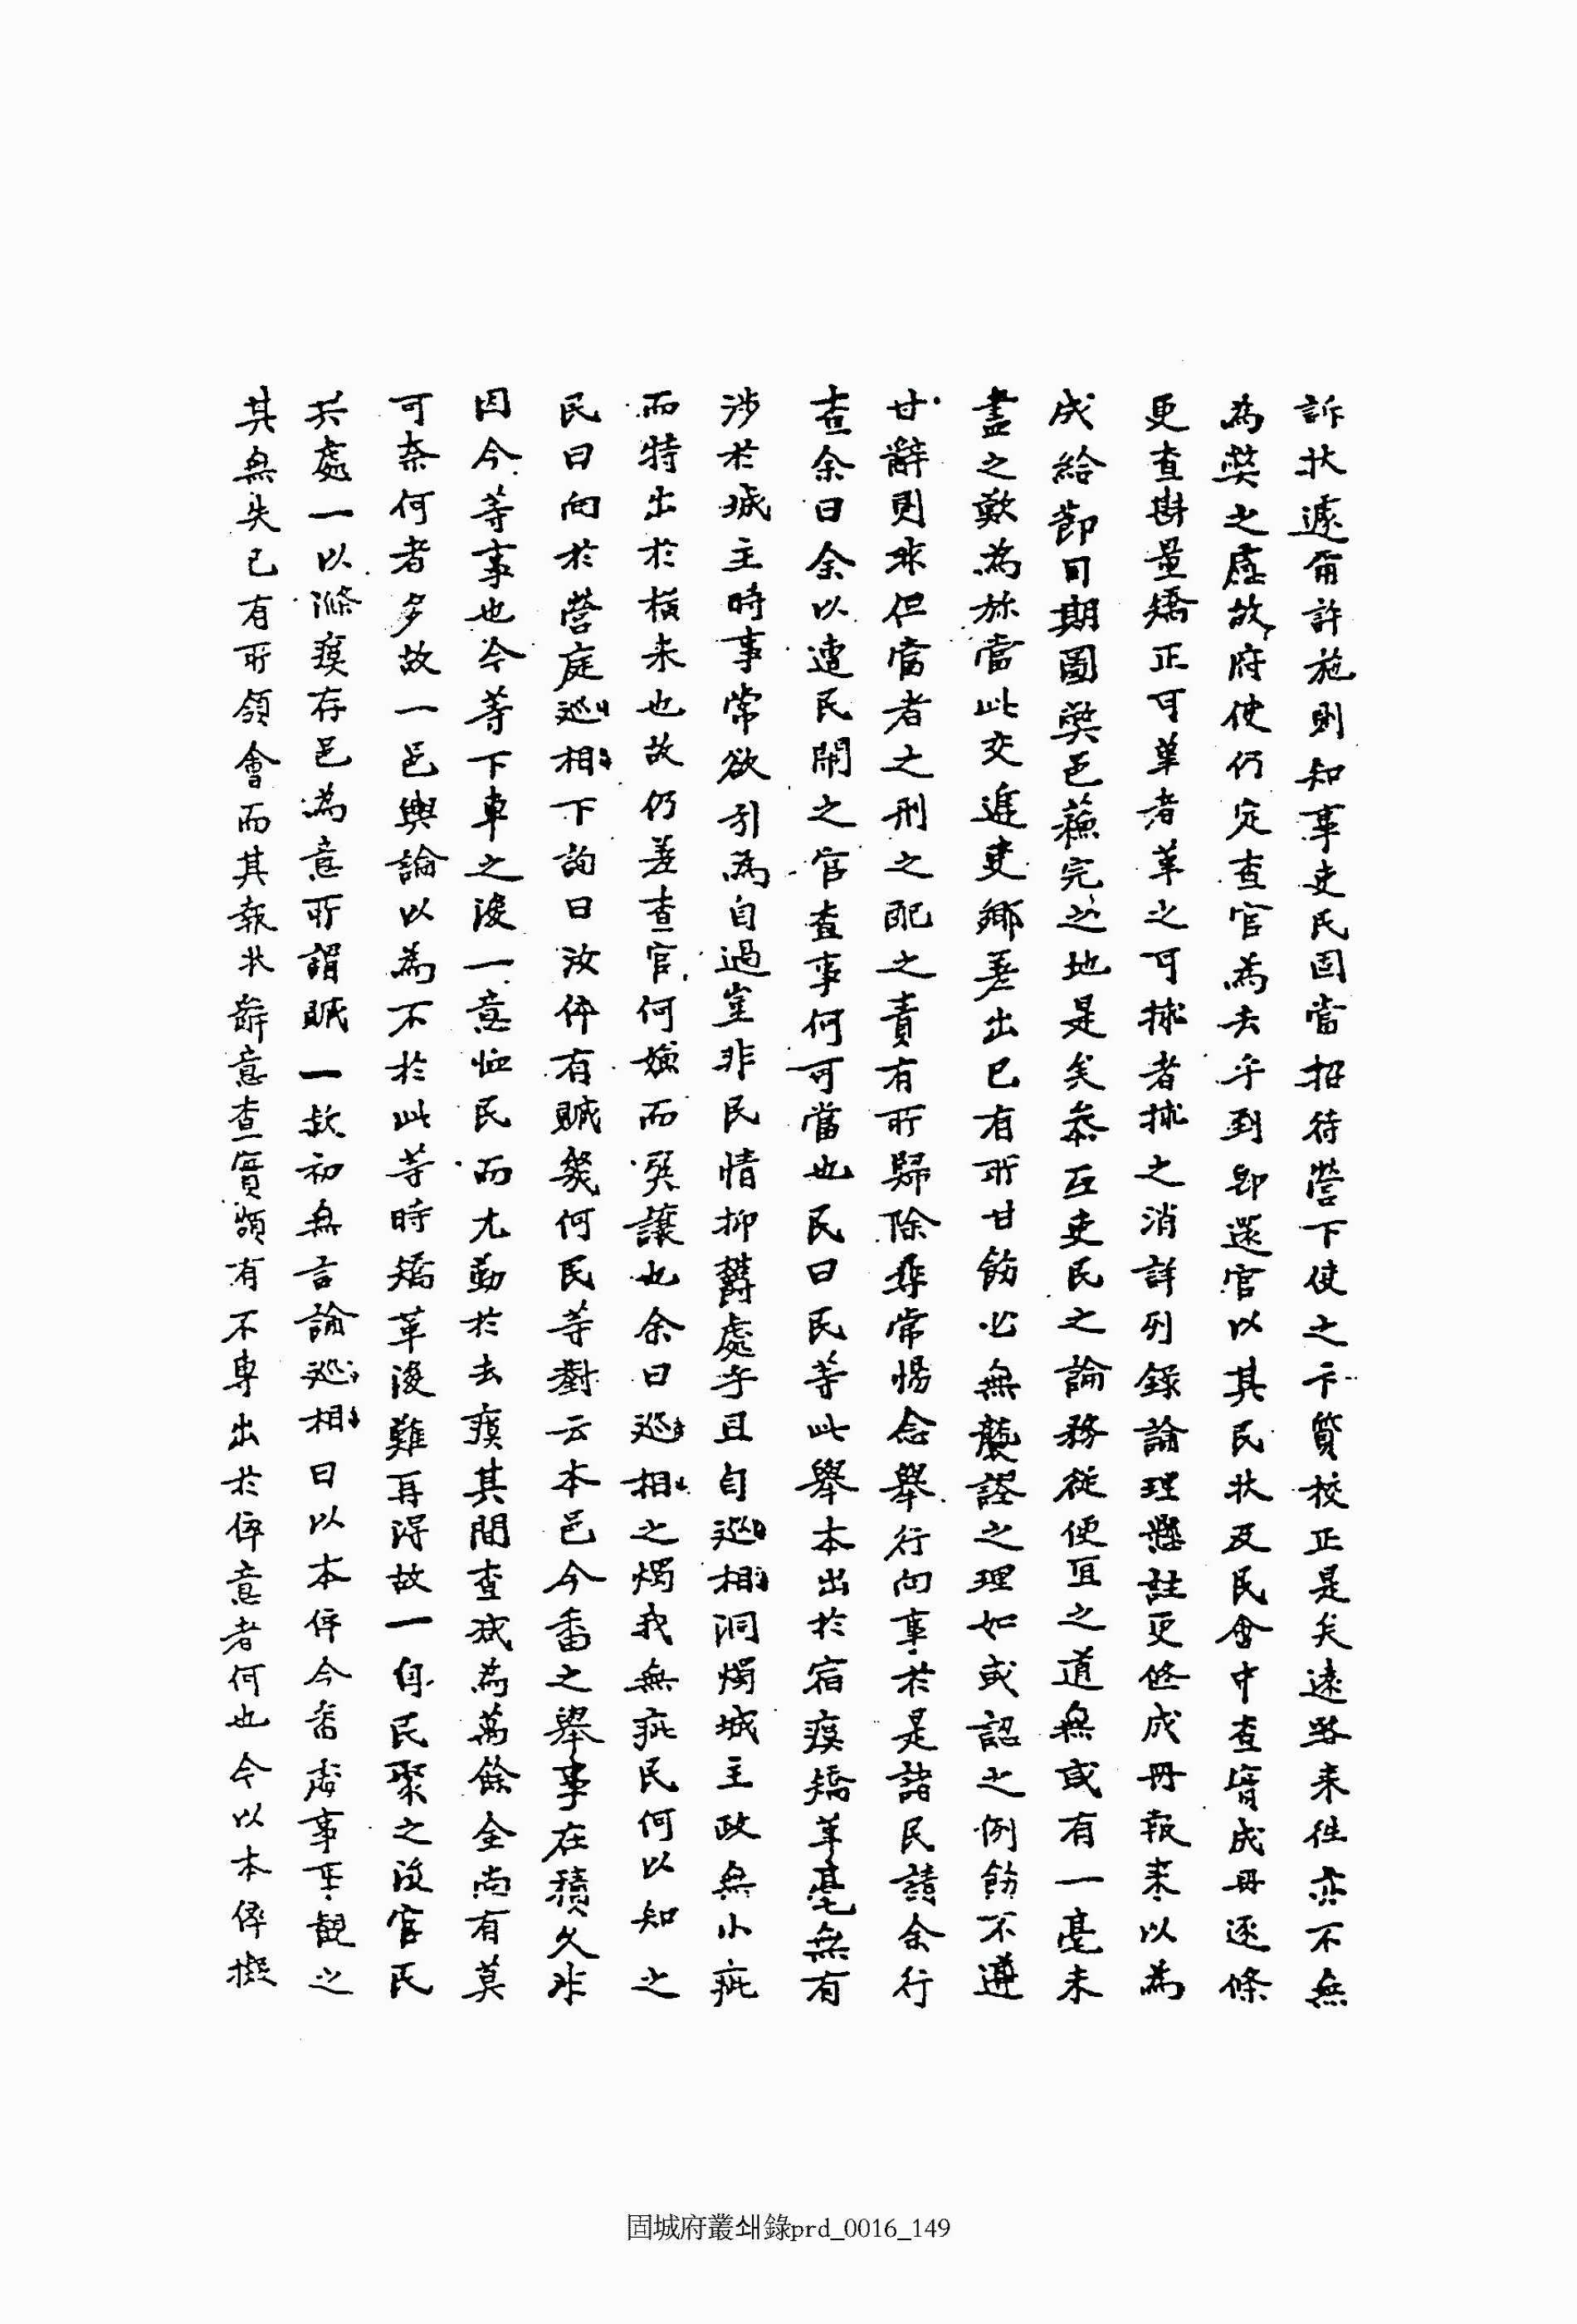 訴狀遽爾許施則知事吏民固當招待營下使之下質校正是矣遠路来徃亦不無
為獘之慮故府使仍定查官為去乎到卽還官以其民狀及民會中查實成冊逐條
更查斟量矯正可革者革之可捄者捄之消詳列錄論理懸註更修成冊報来以為
成給節目期圖獘邑蘇完之地是矣叅互吏民之論務從便宜之道無或有一毫未
盡之歎為旀當此交遞吏鄕差出已有所甘飭必無襲謬之理如或詔之例飭不遵
甘辭則米但當者之刑之配之責有所歸除尋常惕念擧行向事於是諸民請余行
查余曰余以遭民鬧之官查事何可當也民曰民等此擧本出於宿瘼矯革毫無有
涉於城主時事常欲引為自過豈非民情抑鬱處乎且自巡相洞燭城主政無小疵
而特出於橫来也故仍差查官何嫌而巽讓也余曰巡相之燭我無疵民何以知之
民曰向於營庭巡相下詢曰汝倅有贓幾何民等對云本邑今番之擧事在積久非
因今等事也今等下車之後一意恤民而尤勤於去瘼其間查減為萬餘金尚有莫
可奈何者多故一邑輿論以為不於此等時矯革後難再得故一自民聚之後官民
共處一以滌瘼存邑為意所謂贓一款初無言論巡相曰以本倅今番處事事觀之
其無失已有所領會而其報狀辭意查實頗有不專出於倅意者何也今以本倅擬
固城府叢쇄錄prd_0016_149